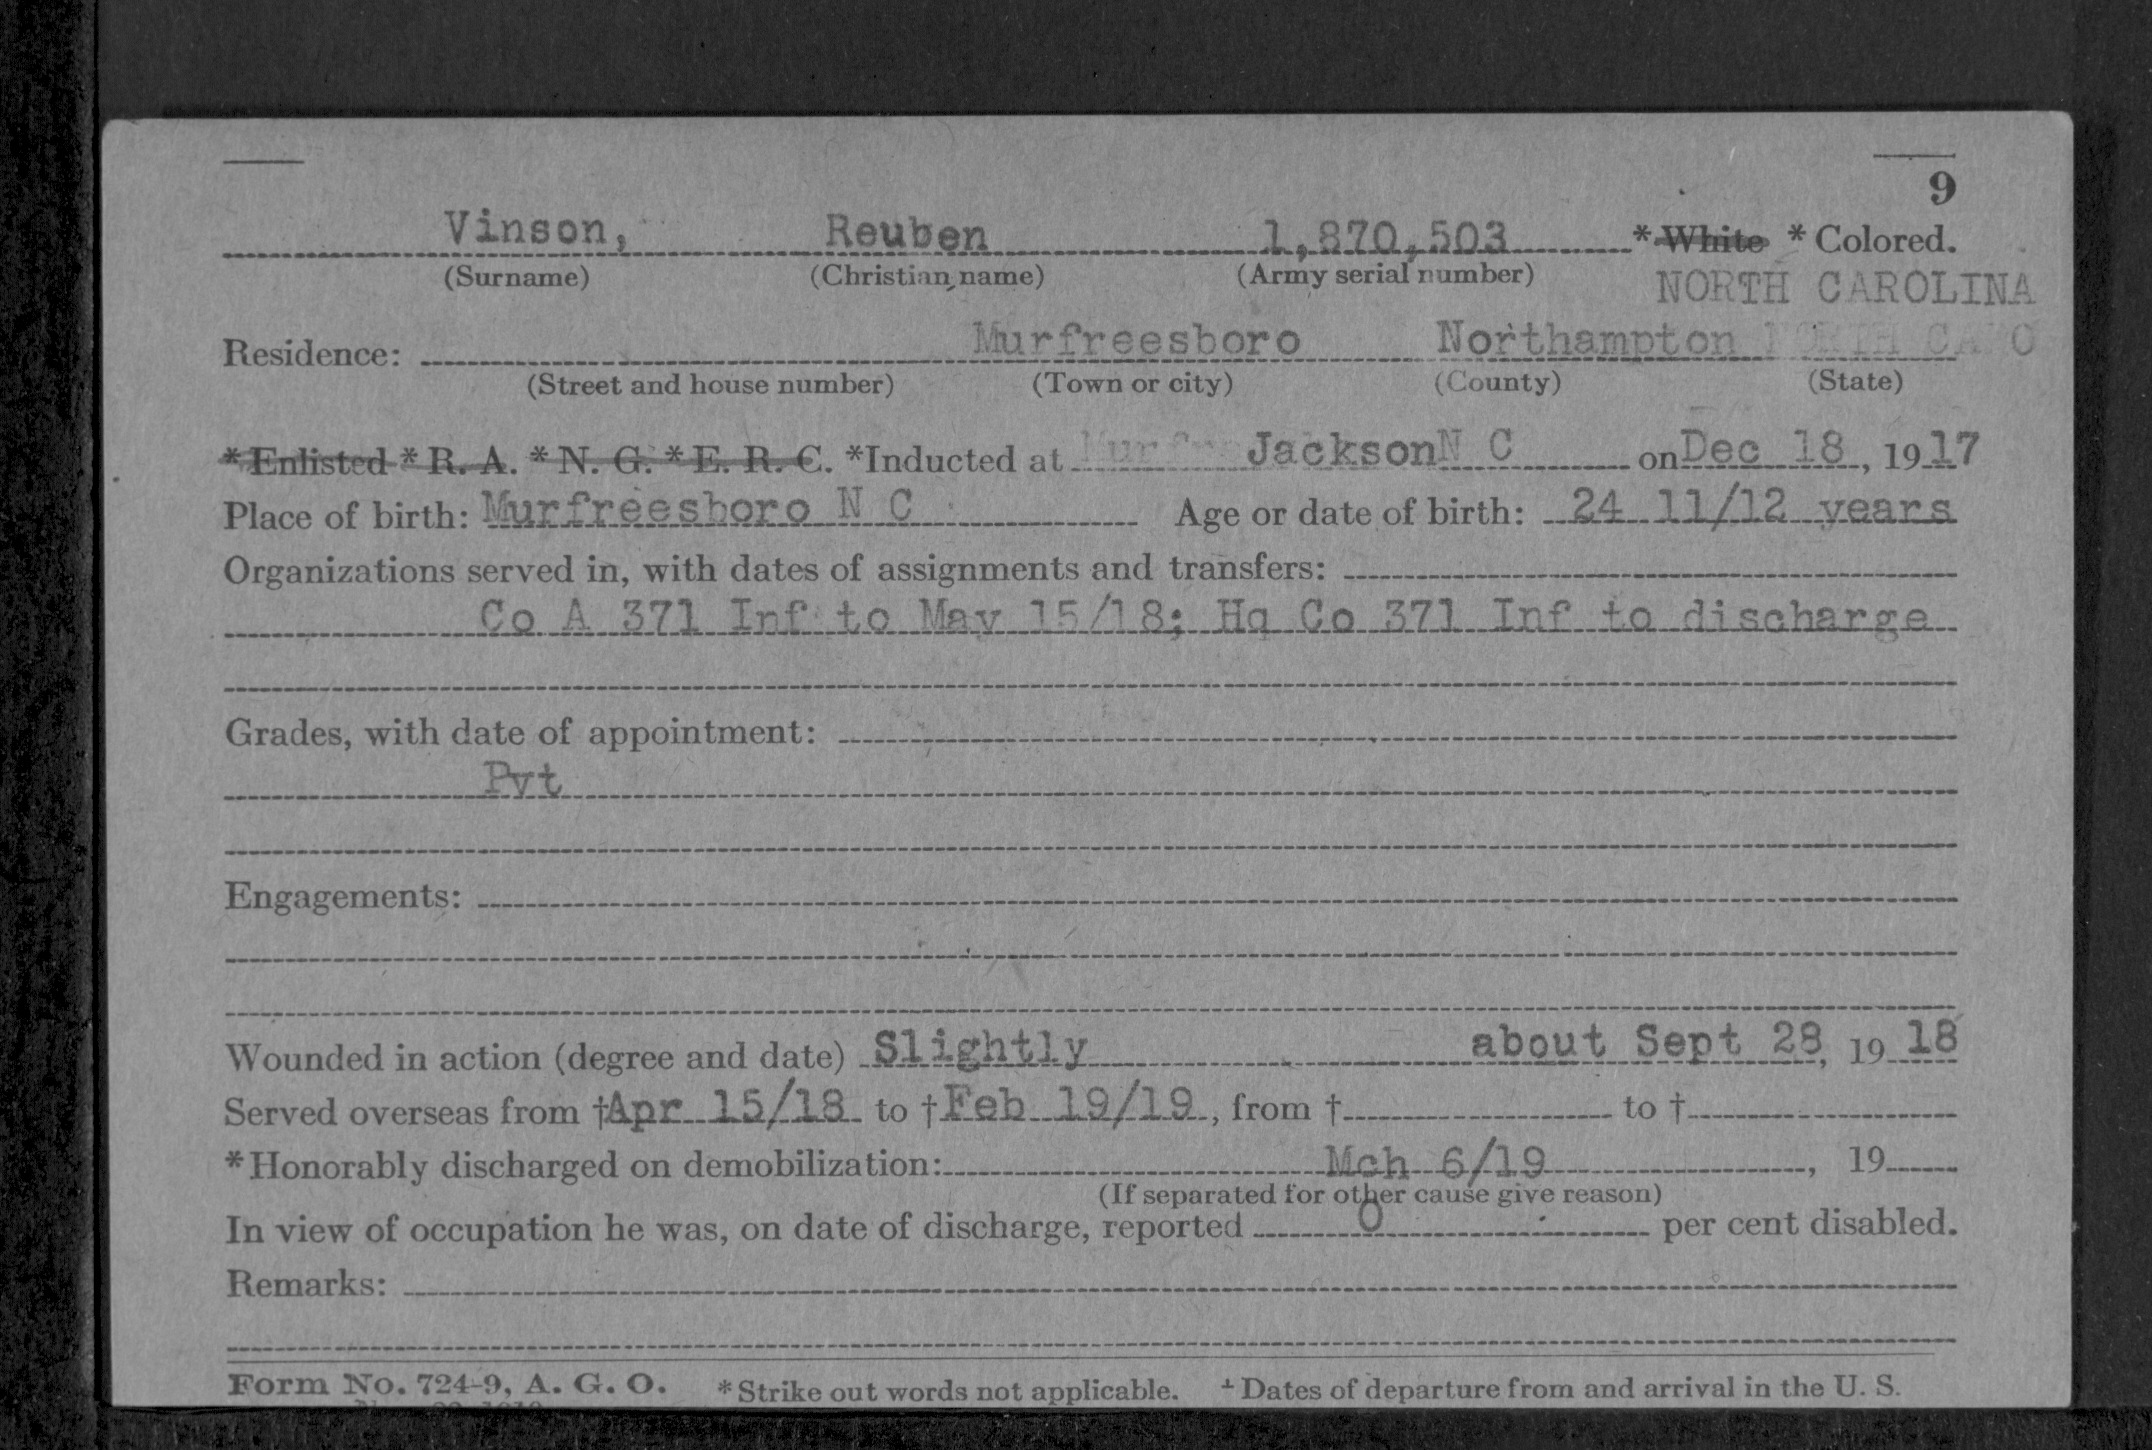 9
Vinson, Reuben 1,870,503 * White * Colored.
(Surname) (Christian name) (Army serial number)
NORTH CAROLINA
Residence: Murfreesboro Northampton
(Street and house number) (Town or city) (County) (State)
* Enlisted * R. A. * N. G. * E. R. C. *Inducted at Jackson N C on Dec 18, 1917
Place of birth: Murfreesboro N C Age or date of birth: 24 11/12 years
Organizations served in, with dates of assignments and transfers:
Co A 371 Inf to May 15/18; Hq Co 371 Inf to discharge
Grades, with date of appointment:
Pvt
Engagements:
Wounded in action (degree and date) Slightly about Sept 28, 19 18
Served overseas from †Apr 15/18 to †Feb 19/19, from † to †
*Honorably discharged on demobilization: Mch 6/19, 19
(If separated for other cause give reason)
In view of occupation he was, on date of discharge, reported 0 per cent disabled.
Remarks:
Form No. 724-9, A. G. O. *Strike out words not applicable. † Dates of departure from and arrival in the U. S.